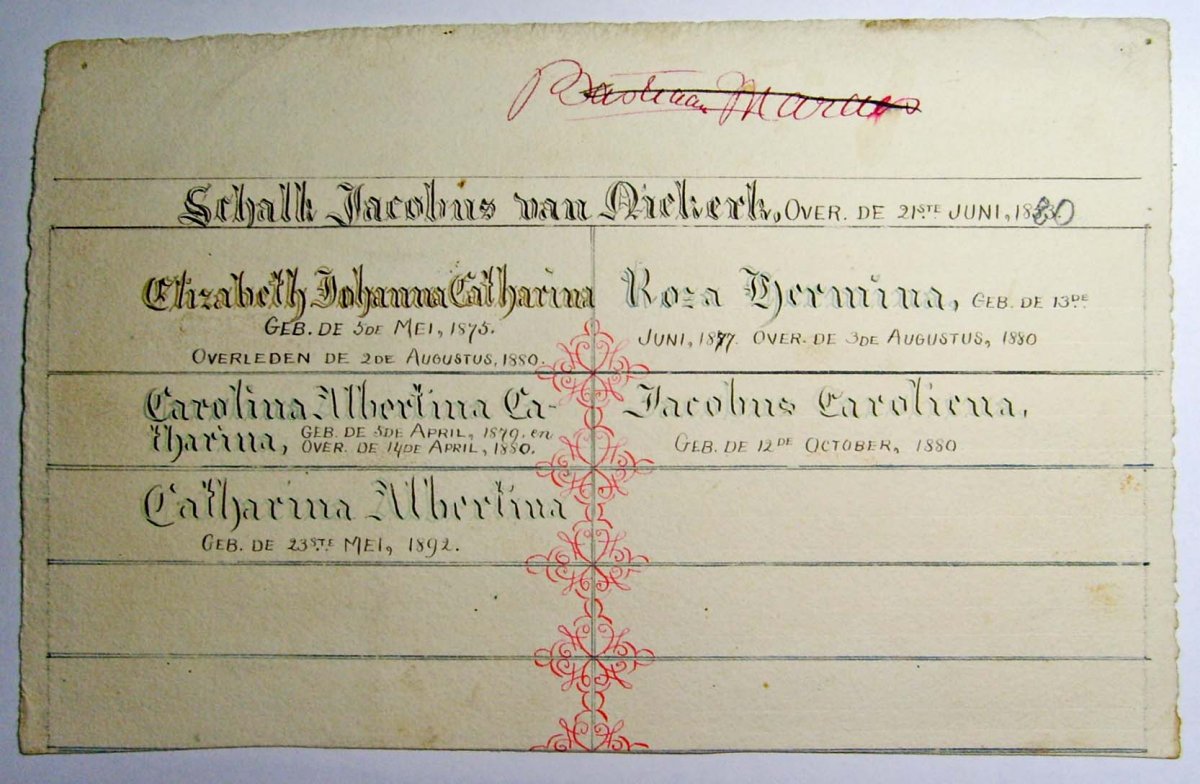 Bastiaan Marais
Schalk Jacobus van Niekerk, OVER. DE 21STE JUNI, 1880
Elizabeth Johanna Catharina
GEB. DE 5DE MEI, 1875.
OVERLEDEN DE 2DE AUGUSTUS, 1880.
Roza Hermina, GEB. DE 13DE
JUNI, 1877. OVER. DE 3DE AUGUSTUS, 1880
Carolina Albertina Ca-
tharina, GEB. DE 5DE APRIL, 1879. en
OVER. DE 14DE APRIL, 1880.
Jacobus Caroliena,
GEB. DE 12DE OCTOBER, 1880
Catharina Albertina
GEB. DE 23STE MEI, 1892.